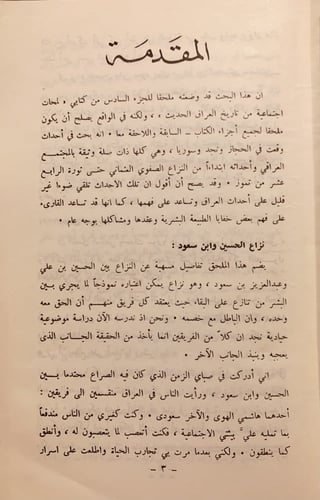 المقدمة
ان هذا البحث قد وضعته ملحقا للجزء السادس من كتابي « لمحات
اجتماعية من تاريخ العراق الحديث » ، ولكنه في الواقع يصلح أن يكون
ملحقا لجميع أجزاء الكتاب - السابقة واللاحقة معا . انه بحث في أحداث
وقعت في الحجاز ونجد وسوريا ، وهي كلها ذات صلة وثيقة بالمجتمع
العراقي وأحداثه ابتداءاً من النزاع الصفوي العثماني حتى ثورة الرابع
عشر من تموز . وقد يصح أن أقول ان تلك الأحداث تلقي ضوءا غير
قليل على أحداث العراق وتساعد على فهمها ، كما انها قد تساعد القارىء
على فهم بعض خفايا الطبيعة البشرية وعقدها ومشاكلها بوجه عام .
نزاع الحسين وابن سعود :
يضم هذا الملحق تفاصيل مسهبة عن النزاع بين الحسين بن علي
وعبدالعزيز بن سعود ، وهو نزاع يمكن اعتباره نموذجاً لما يجري بين
البشر من تنازع على البقاء حيث يعتقد كل فريق منهم أن الحق معه
وحده ، وان الباطل مع خصمه . ونحن اذ ندرسه الآن دراسة موضوعية
حيادية نجد ان كلاً من الفريقين انما يأخذ من الحقيقة الجانب الذي
يعجبه وينبذ الجانب الآخر .
اني أدركت في صباي الزمن الذي كان فيه الصراع محتدما بين
الحسين وابن سعود ، ورأيت الناس في العراق منقسمين الى فريقين :
أحدهما هاشمي الهوى والآخر سعودى . وكنت كغيري من الناس مندفعاً
بما تمليه عليَّ بيئتي الاجتماعية ، فكنت أتعصب لما يتعصبون له ، وأنطق
كما ينطقون . ولكني بعدما مرت بي تجارب الحياة واطلعت على اسرار
- ٣ -